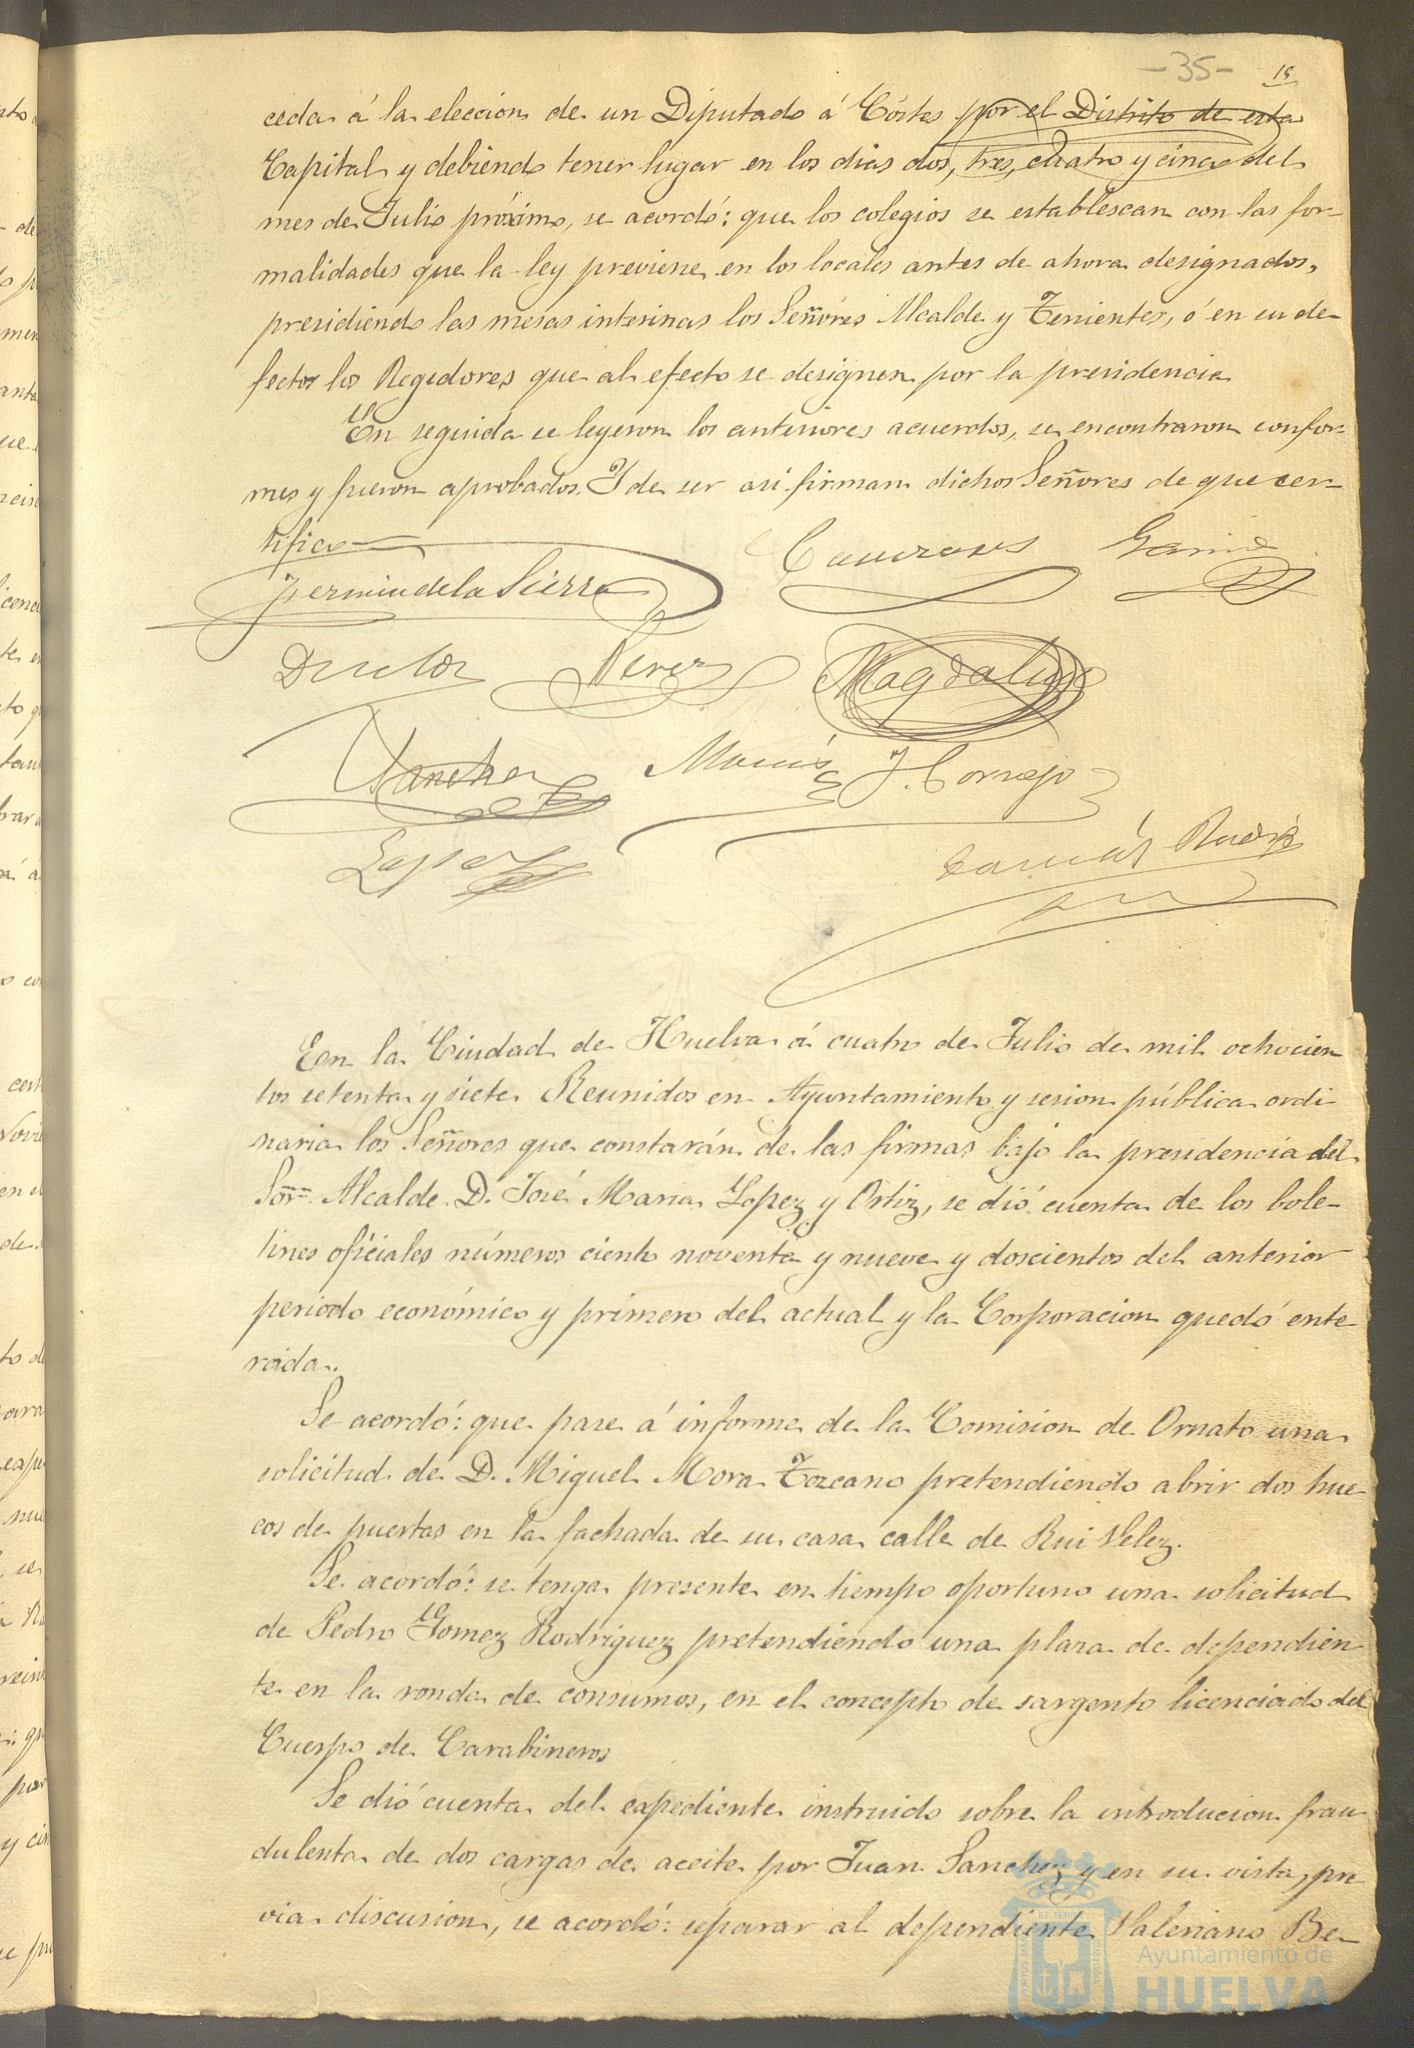 -35-
18
ceda á la eleccion de un Diputado á Córtes por el Distrito de esta
Capital y debiendo tener lugar en los dias dos, tres, cuatro y cinco del
mes de Julio próximo, se acordó: que los colegios se establescan con las for-
malidades que la ley previene en los locales antes de ahora designados,
presidiendo las mesas interinas los Señores Alcalde y Tenientes, ó en su de-
fecto los Regidores que al efecto se designen por la presidencia
En seguida se leyeron los anteriores acuerdos, se encontraron confor-
mes y fueron aprobados. Y de ser asi firman dichos Señores de que cer-
tifico
Fermin de la Sierra
Garcia
Perez
Magdalena
Sanchez
Macias
J. Cornejo
Lopez
En la Ciudad de Huelva á cuatro de Julio de mil ochocien
tos setenta y siete Reunidos en Ayuntamiento y sesion pública ordi
naria los Señores que constarán de las firmas bajo la presidencia del
Sor. Alcalde D. José Maria Lopez y Ortiz, se dió cuenta de los bole-
tines oficiales números ciento noventa y nueve y doscientos del anterior
periodo económico y primero del actual y la Corporacion quedó ente
rada.
Se acordó: que pase á informe de la Comision de Ornato una
solicitud de D. Miguel Mora Tozcano pretendiendo abrir dos hue
cos de puertas en la fachada de su casa calle de Rui Velez.
Se acordó: se tenga presente en tiempo oportuno una solicitud
de Pedro Gomez Rodriguez pretendiendo una plaza de dependien
te en la ronda de consumos, en el concepto de sargento licenciado del
Cuerpo de Carabineros
Se dió cuenta del expediente instruido sobre la introducion frau
dulenta de dos cargas de aceite por Juan Sanchez y en su vista, pre
via discusion, se acordó: separar al dependiente Valeriano Be-
Ayuntamiento de
HUELVA